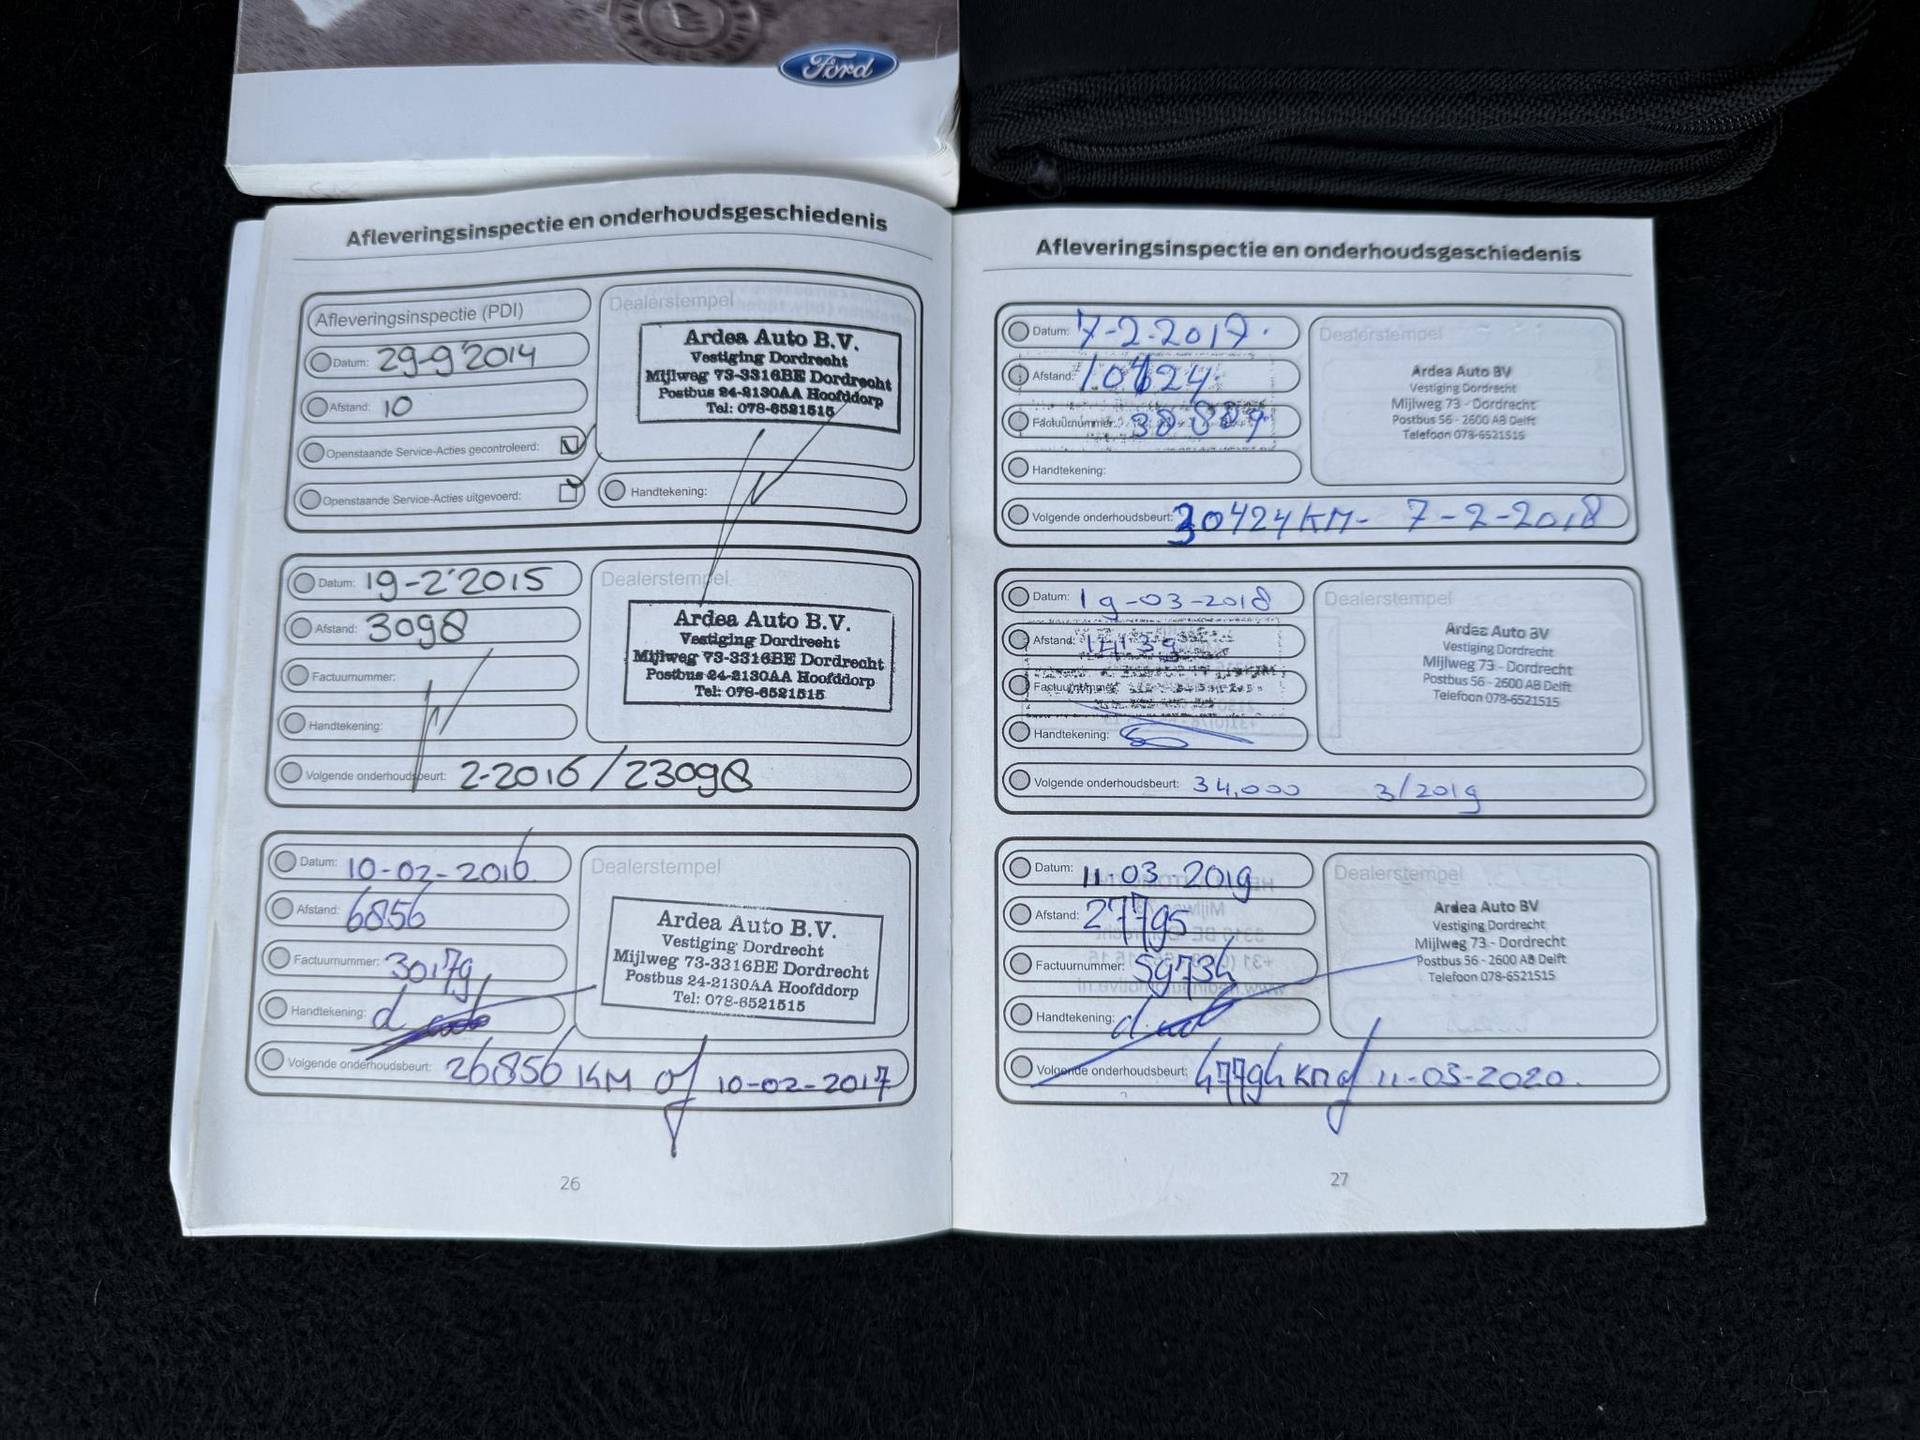 Ford
Afleveringsinspectie en onderhoudsgeschiedenis
Afleveringsinspectie (PDI)
Datum: 29-9'2014
Afstand: 10
Openstaande Service-Acties gecontroleerd:
Openstaande Service-Acties uitgevoerd:
Dealerstempel
Ardea Auto B.V.
Vestiging Dordrecht
Mijlweg 73-3316BE Dordrecht
Postbus 24-2130AA Hoofddorp
Tel: 078-6521515
Handtekening:
Datum: 19-2'2015
Afstand: 3098
Factuurnummer:
Handtekening:
Dealerstempel
Ardea Auto B.V.
Vestiging Dordrecht
Mijlweg 73-3316BE Dordrecht
Postbus 24-2130AA Hoofddorp
Tel: 078-6521515
Volgende onderhoudsbeurt: 2-2016/23098
Datum: 10-02-2016
Afstand: 6856
Factuurnummer: 30179
Handtekening:
Dealerstempel
Ardea Auto B.V.
Vestiging Dordrecht
Mijlweg 73-3316BE Dordrecht
Postbus 24-2130AA Hoofddorp
Tel: 078-6521515
Volgende onderhoudsbeurt: 26856 KM of 10-02-2017
26
Afleveringsinspectie en onderhoudsgeschiedenis
Datum: 7-2-2017.
Afstand: 10424
Factuurnummer:
Handtekening:
Dealerstempel
Ardea Auto BV
Vestiging Dordrecht
Mijlweg 73 - Dordrecht
Postbus 56 - 2600 AB Delft
Telefoon 078-6521515
Volgende onderhoudsbeurt: 30424 KM- 7-2-2018
Datum: 19-03-2018
Afstand: 14139
Factuurnummer
Handtekening:
Dealerstempel
Ardea Auto BV
Vestiging Dordrecht
Mijlweg 73 - Dordrecht
Postbus 56 - 2600 AB Delft
Telefoon 078-6521515
Volgende onderhoudsbeurt: 34,000 3/2019
Datum: 11-03 2019
Afstand: 27795
Factuurnummer: 59734
Handtekening:
Dealerstempel
Ardea Auto BV
Vestiging Dordrecht
Mijlweg 73 - Dordrecht
Postbus 56 - 2600 AB Delft
Telefoon 078-6521515
Volgende onderhoudsbeurt: 47794 KM of 11-03-2020.
27